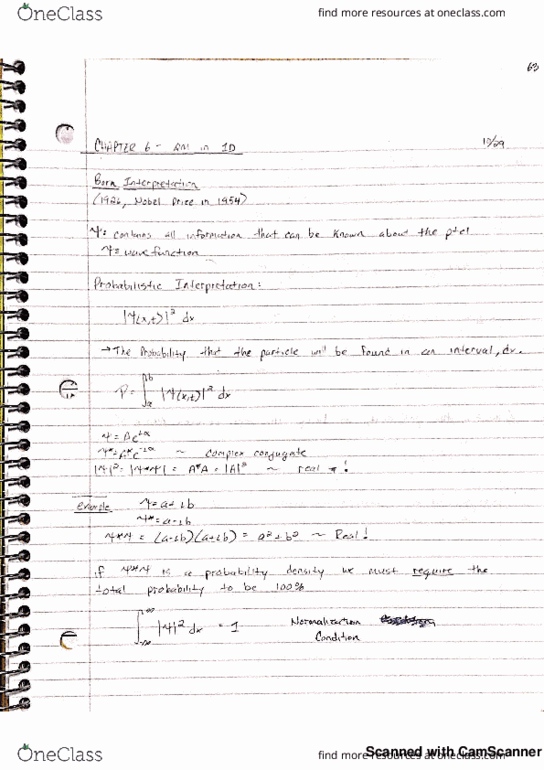 OneClass
find more resources at oneclass.com
63
CHAPTER 6 - QM in 1D
10/29
Born Interpretation
(1926, Nobel Price in 1954)
Ψ = contains all information that can be known about the ptcl
Ψ = wave function
Probabilistic Interpretation:
|Ψ(x,t)|² dx
→ The Probability that the particle will be found in an interval, dx.
P = ∫ₐᵇ |Ψ(x,t)|² dx
Ψ = Ae^iα
Ψ* = A*e^-iα ~ complex conjugate
|Ψ|² = |Ψ*Ψ| = A*A = |A|² ~ real !
example Ψ = a + ib
Ψ* = a - ib
Ψ*Ψ = (a-ib)(a+ib) = a² + b² ~ Real!
if Ψ*Ψ is a probability density we must require the
total probability to be 100%
∫ |Ψ|² dx = 1 Normalization
Condition
OneClass
find more resources at oneclass.com
Scanned with CamScanner